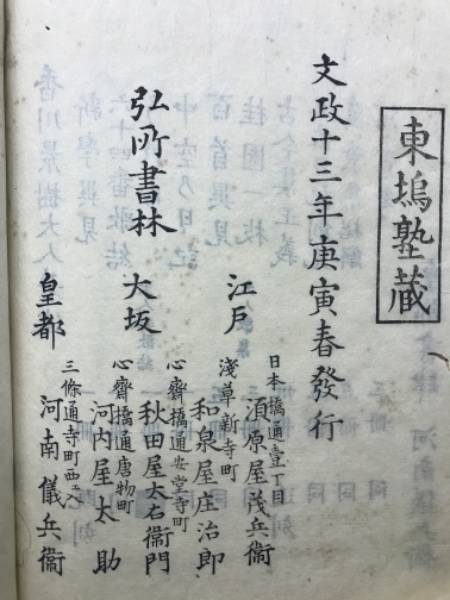 東塢塾蔵
文政十三年庚寅春發行
弘所書林
江戸
日本橋通壹丁目
須原屋茂兵衞
淺草新寺町
和泉屋庄治郎
大坂
心齋橋通安堂寺町
秋田屋太右衞門
心齋橋通唐物町
河内屋太助
皇都
三條通寺町西
河南儀兵衞